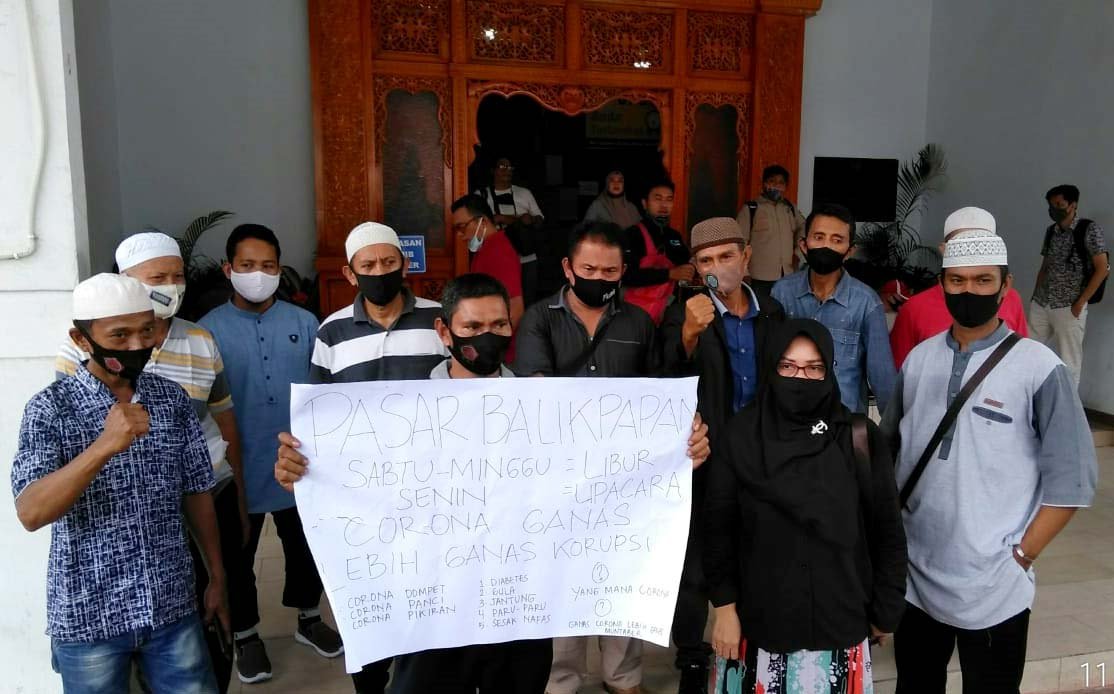 PASAR BALIKPAPAN
SABTU-MINGGU = LIBUR
SENIN = UPACARA
CORONA GANAS
EBIH GANAS KORUPSI
CORONA DOMPET
CORONA PANCI
CORONA PIKIRAN
1 DIABETES
2 GULA
3 JANTUNG
4 PARU-PARU
5. SESAK NAFAS
?
YANG MANA CORONA
?
GANAS CORONA LEBIH
MUNTABER
11